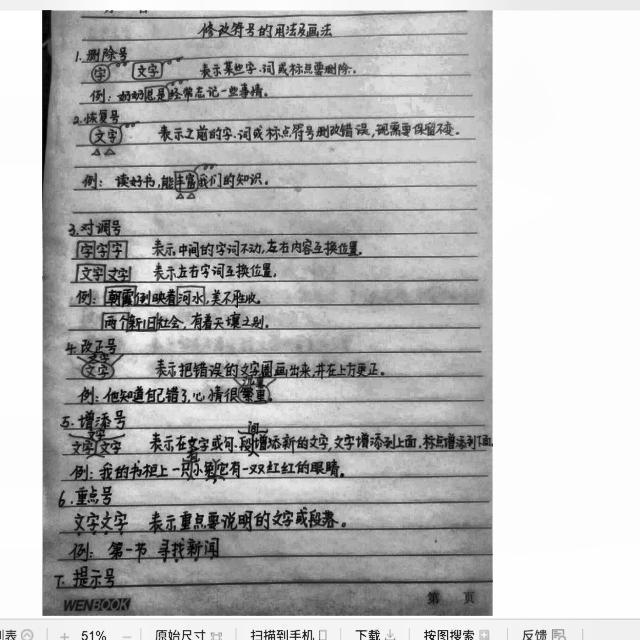 修改符号的用法及画法
1.删除号
字 文字 表示某些字.词或标点要删除.
例：奶奶总是经常忘记一些事情。
2.恢复号
文字 表示之前的字.词或标点符号删改错误,现需要保留不变。
例：读好书,能丰富我们的知识。
3.对调号
字字字 表示中间的字词不动,左右内容互换位置.
文字文字 表示左右字词互换位置.
例：朝霞倒映着河水,美不胜收。
两个新旧社会,有着天壤之别。
4.改正号
文字
文字 表示把错误的文字圈画出来,并在上方更正。
沉重
例：他知道自己错了,心情很繁重。
5.增添号
文字 间
文字文字 表示在文字或句.段增添新的文字,文字增添到上面,标点增添到下面.
看
例：我的书柜上一只小 它有一双红红的眼睛。
6.重点号
文字文字 表示重点要说明的文字或段落。
例：第一节 寻找新闻
7.提示号
WENBOOK 第 页
列表 51% 原始尺寸 扫描到手机 下载 按图搜索 反馈